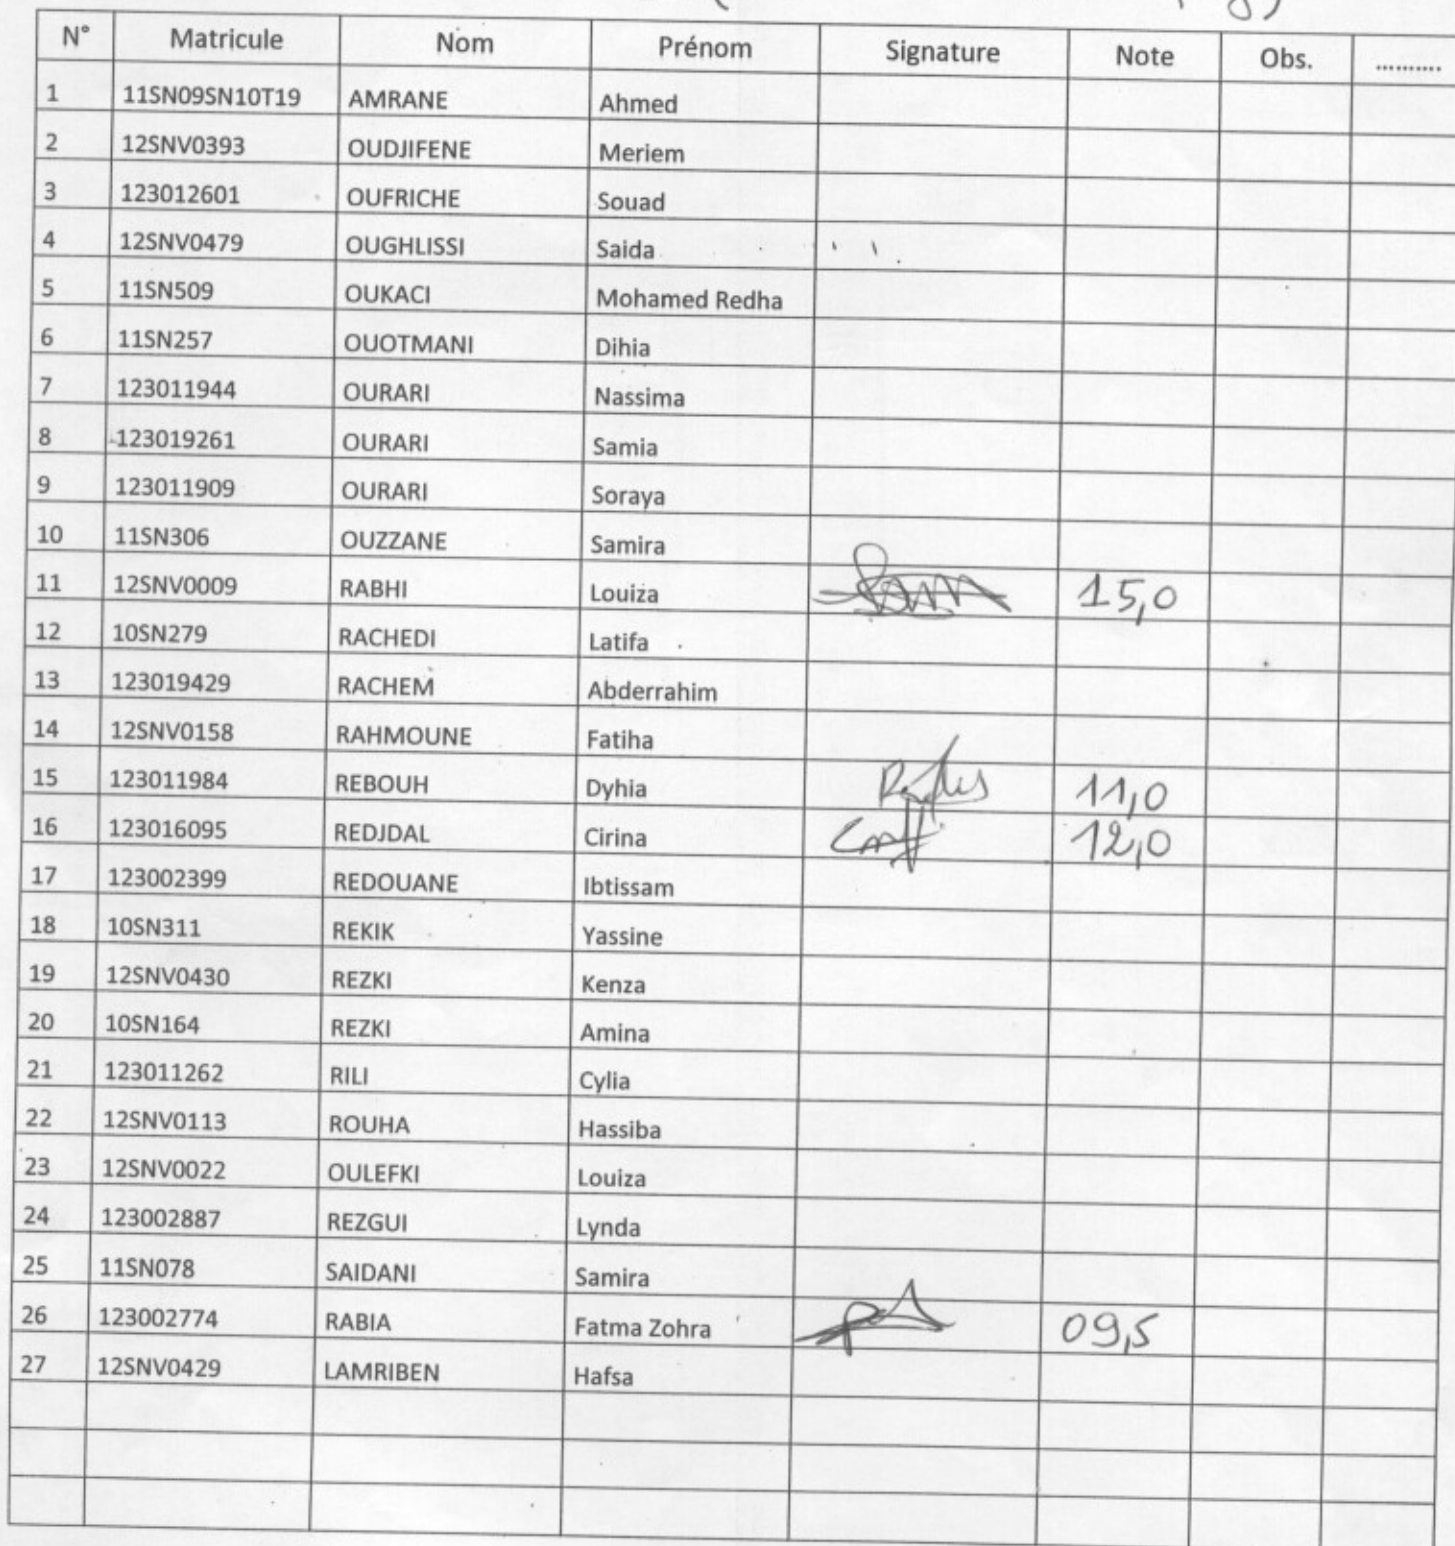 N° Matricule Nom Prénom Signature Note Obs. ..........
1 11SN09SN10T19 AMRANE Ahmed
2 12SNV0393 OUDJIFENE Meriem
3 123012601 OUFRICHE Souad
4 12SNV0479 OUGHLISSI Saida
5 11SN509 OUKACI Mohamed Redha
6 11SN257 OUOTMANI Dihia
7 123011944 OURARI Nassima
8 123019261 OURARI Samia
9 123011909 OURARI Soraya
10 11SN306 OUZZANE Samira
11 12SNV0009 RABHI Louiza 15,0
12 10SN279 RACHEDI Latifa
13 123019429 RACHEM Abderrahim
14 12SNV0158 RAHMOUNE Fatiha
15 123011984 REBOUH Dyhia 11,0
16 123016095 REDJDAL Cirina 12,0
17 123002399 REDOUANE Ibtissam
18 10SN311 REKIK Yassine
19 12SNV0430 REZKI Kenza
20 10SN164 REZKI Amina
21 123011262 RILI Cylia
22 12SNV0113 ROUHA Hassiba
23 12SNV0022 OULEFKI Louiza
24 123002887 REZGUI Lynda
25 11SN078 SAIDANI Samira
26 123002774 RABIA Fatma Zohra 09,5
27 12SNV0429 LAMRIBEN Hafsa